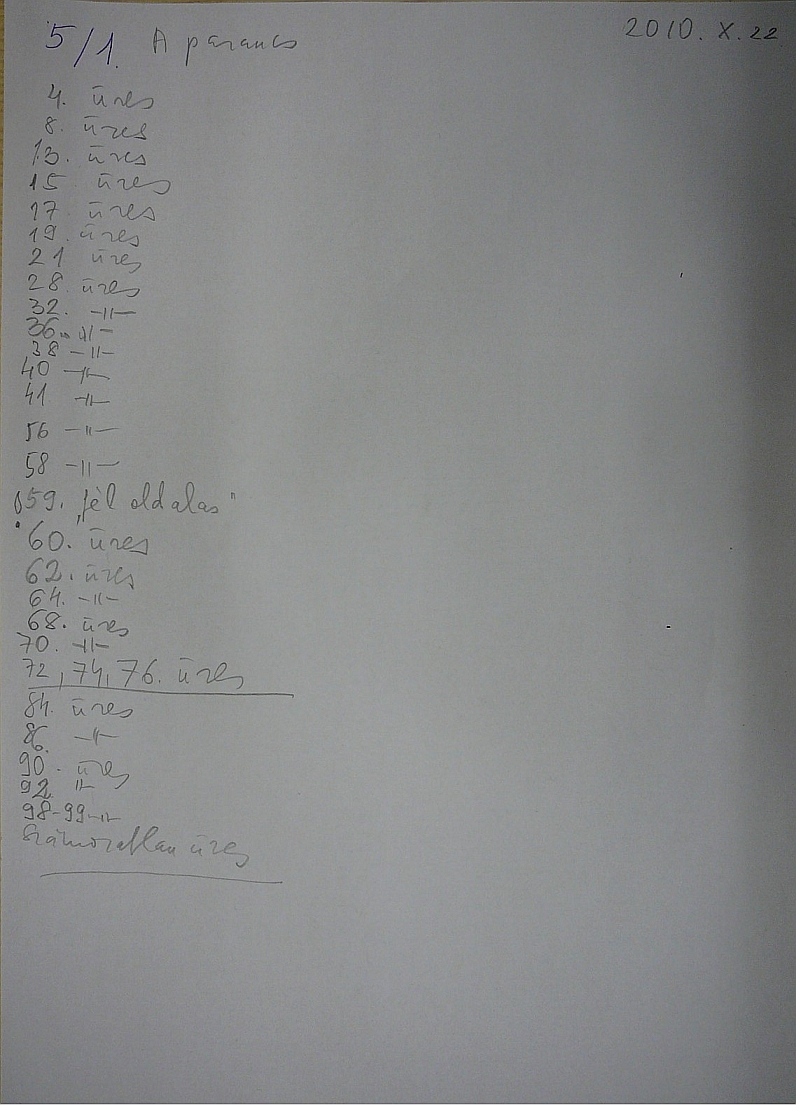 5/1. A parancs 2010. X. 22
4. üres
8. üres
13. üres
15 üres
17 üres
19. üres
21 üres
28. üres
32. -〃-
36. -〃-
38 -〃-
40 -〃-
41 -〃-
56 -〃-
58 -〃-
59. „fél oldalas"
60. üres
62. üres
64. -〃-
68. üres
70. -〃-
72, 74, 76. üres
84. üres
86. -〃-
90. üres
92. 〃-
98-99 -〃-
Számozatlan üres